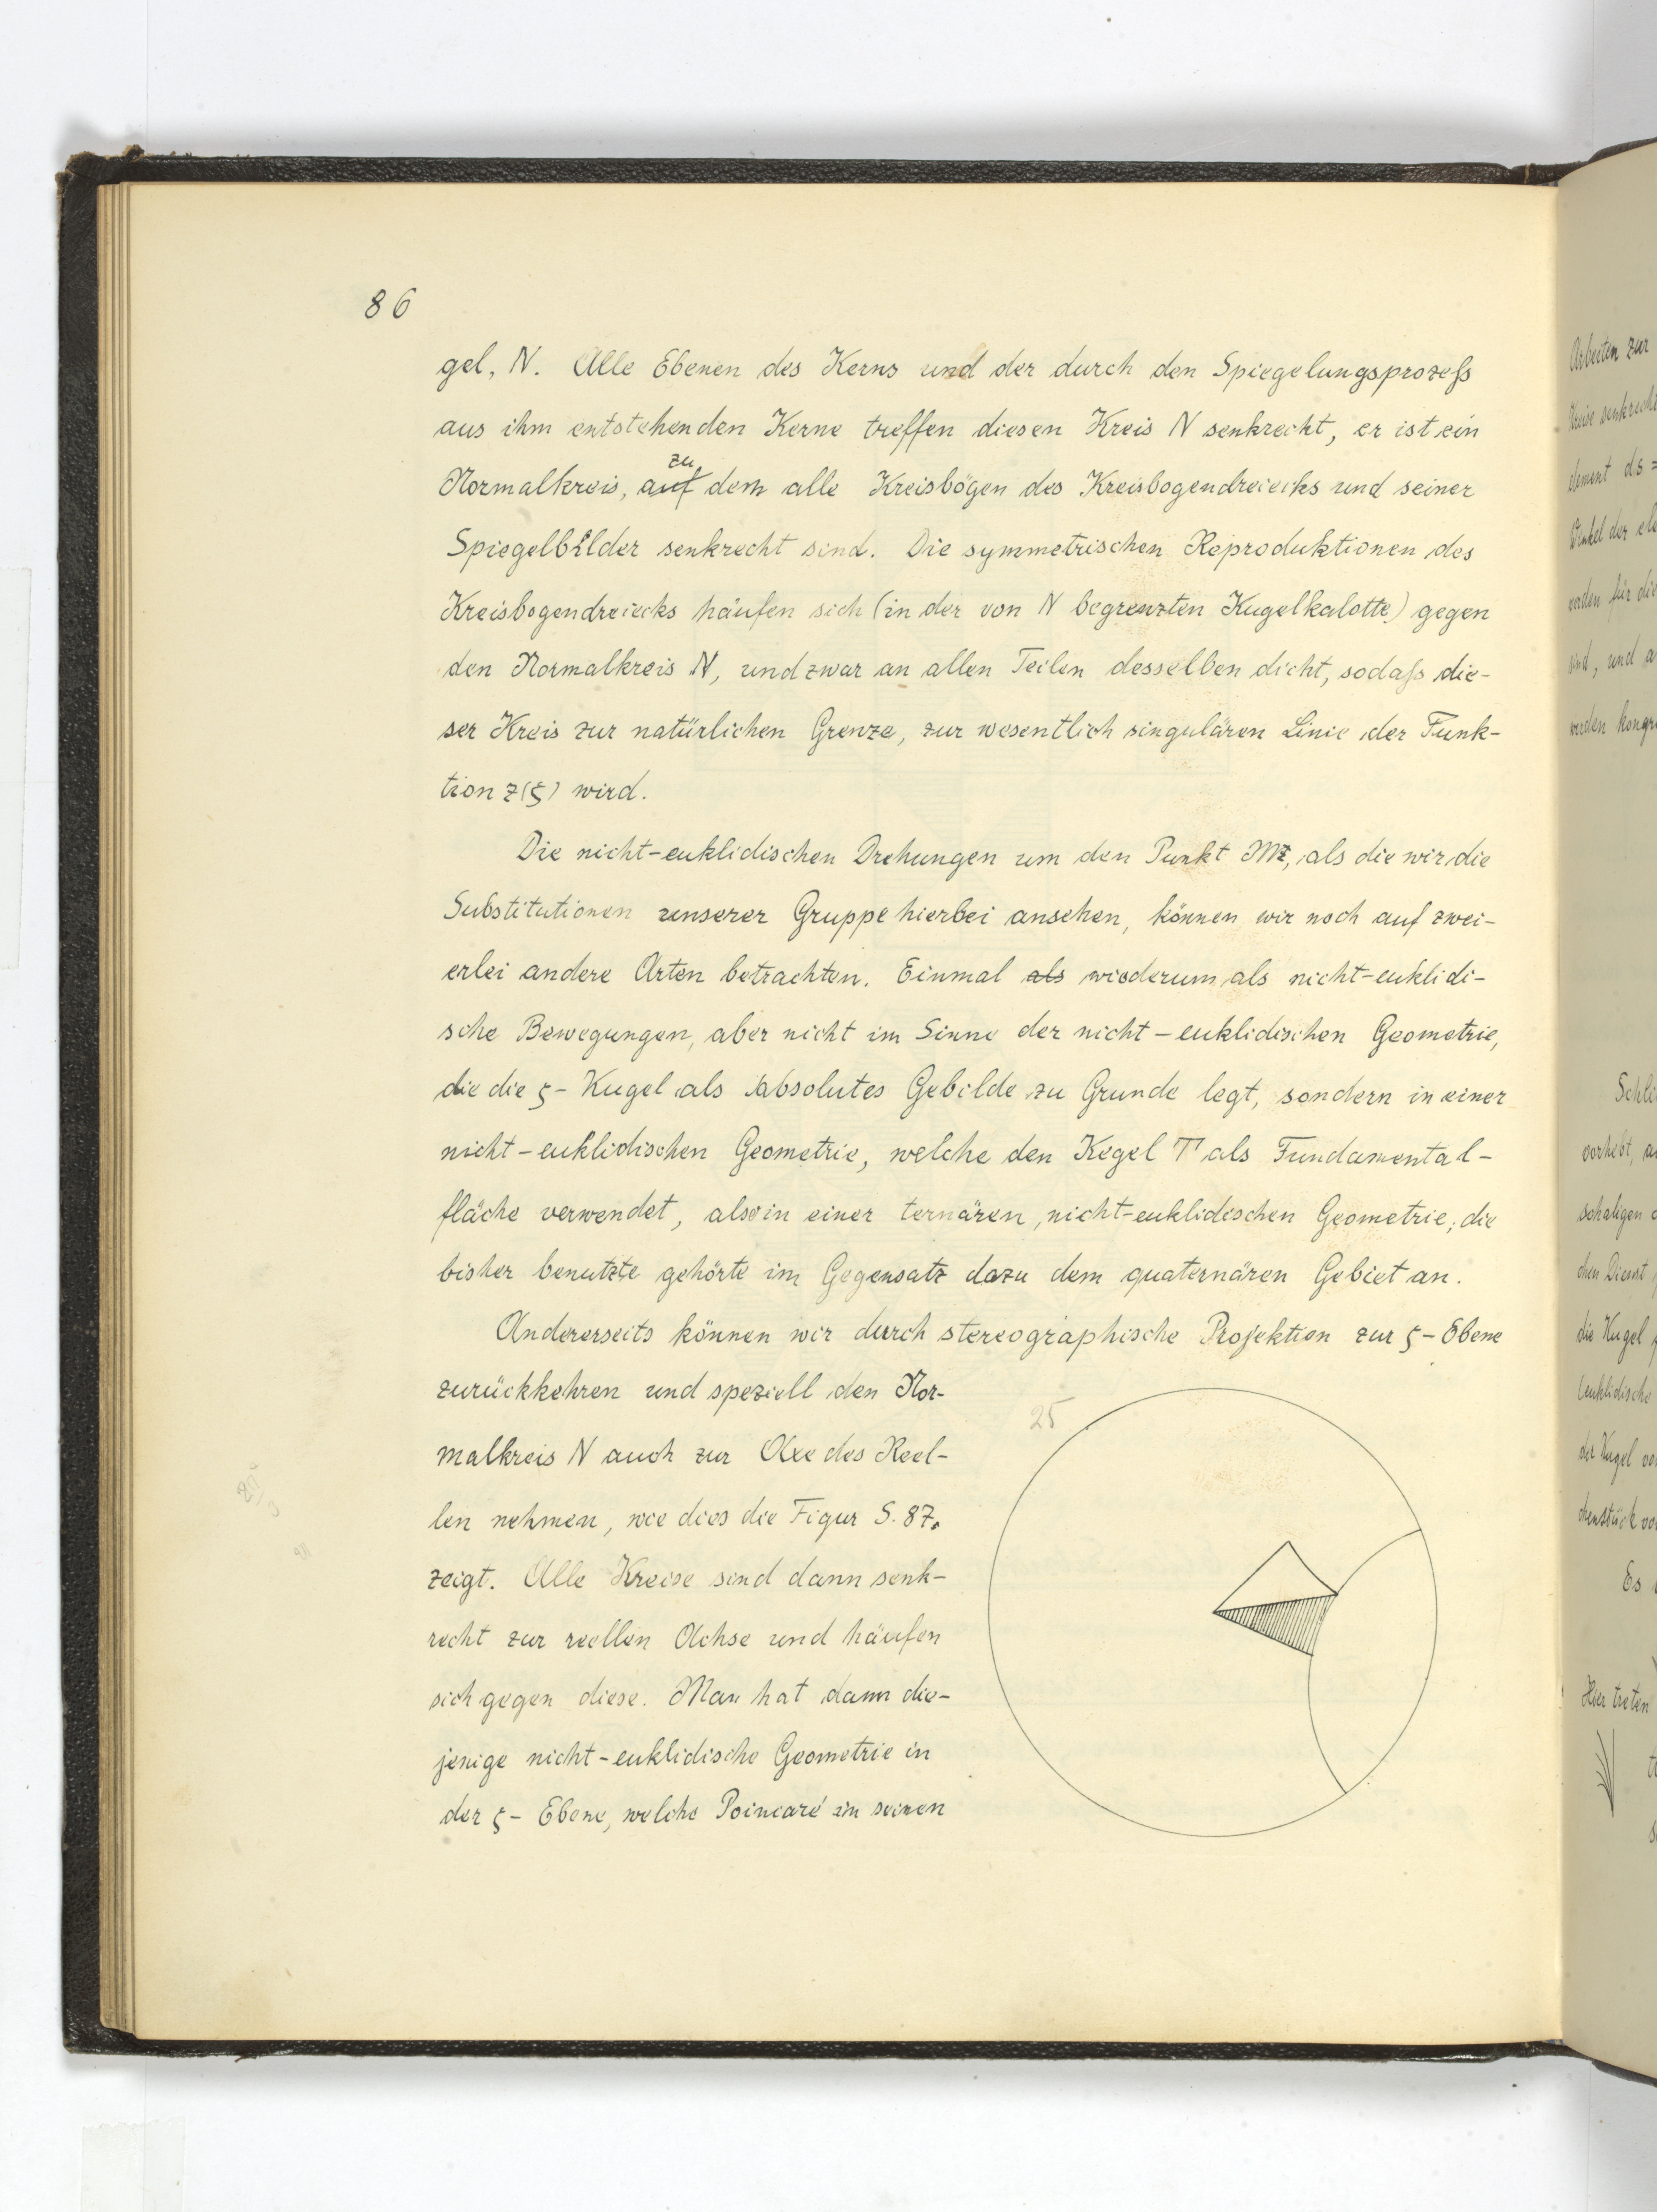 86
gel, N. Alle Ebenen des Kerns und der durch den Spiegelungsprozeß
aus ihm entstehenden Kerne treffen diesen Kreis N senkrecht, er ist ein
zu
Normalkreis, auf dem alle Kreisbögen des Kreisbogendreiecks und seiner
Spiegelbilder senkrecht sind. Die symmetrischen Reproduktionen des
Kreisbogendreiecks häufen sich (in der von N begrenzten Kugelkalotte) gegen
den Normalkreis N, und zwar an allen Teilen desselben dicht, sodaß die-
ser Kreis zur natürlichen Grenze, zur wesentlich singulären Linie der Funk-
tion z(ζ) wird.
Die nicht-euklidischen Drehungen um den Punkt M, als die wir die
Substitutionen unserer Gruppe hierbei ansehen, können wir noch auf zwei-
erlei andere Arten betrachten. Einmal als wiederum als nicht-euklidi-
sche Bewegungen, aber nicht im Sinne der nicht-euklidischen Geometrie,
die die ζ-Kugel als absolutes Gebilde zu Grunde legt, sondern in einer
nicht-euklidischen Geometrie, welche den Kegel T als Fundamental-
fläche verwendet, also in einer ternären, nicht-euklidischen Geometrie; die
bisher benutzte gehörte im Gegensatz dazu dem quaternären Gebiet an.
Andererseits können wir durch stereographische Projektion zur ζ-Ebene
zurückkehren und speziell den Nor-
malkreis N auch zur Axe des Reel-
len nehmen, wie dies die Figur S. 87.
zeigt. Alle Kreise sind dann senk-
recht zur reellen Achse und häufen
sich gegen diese. Man hat dann die-
jenige nicht-euklidische Geometrie in
der ζ-Ebene, welche Poincaré in seinen
25
Arbeiten zur
Kreise senkrecht
element ds =
Winkel der
werden für die
sind, und
werden
vorhebt,
schaligen
die Kugel
der Kugel
Es
Hier treten